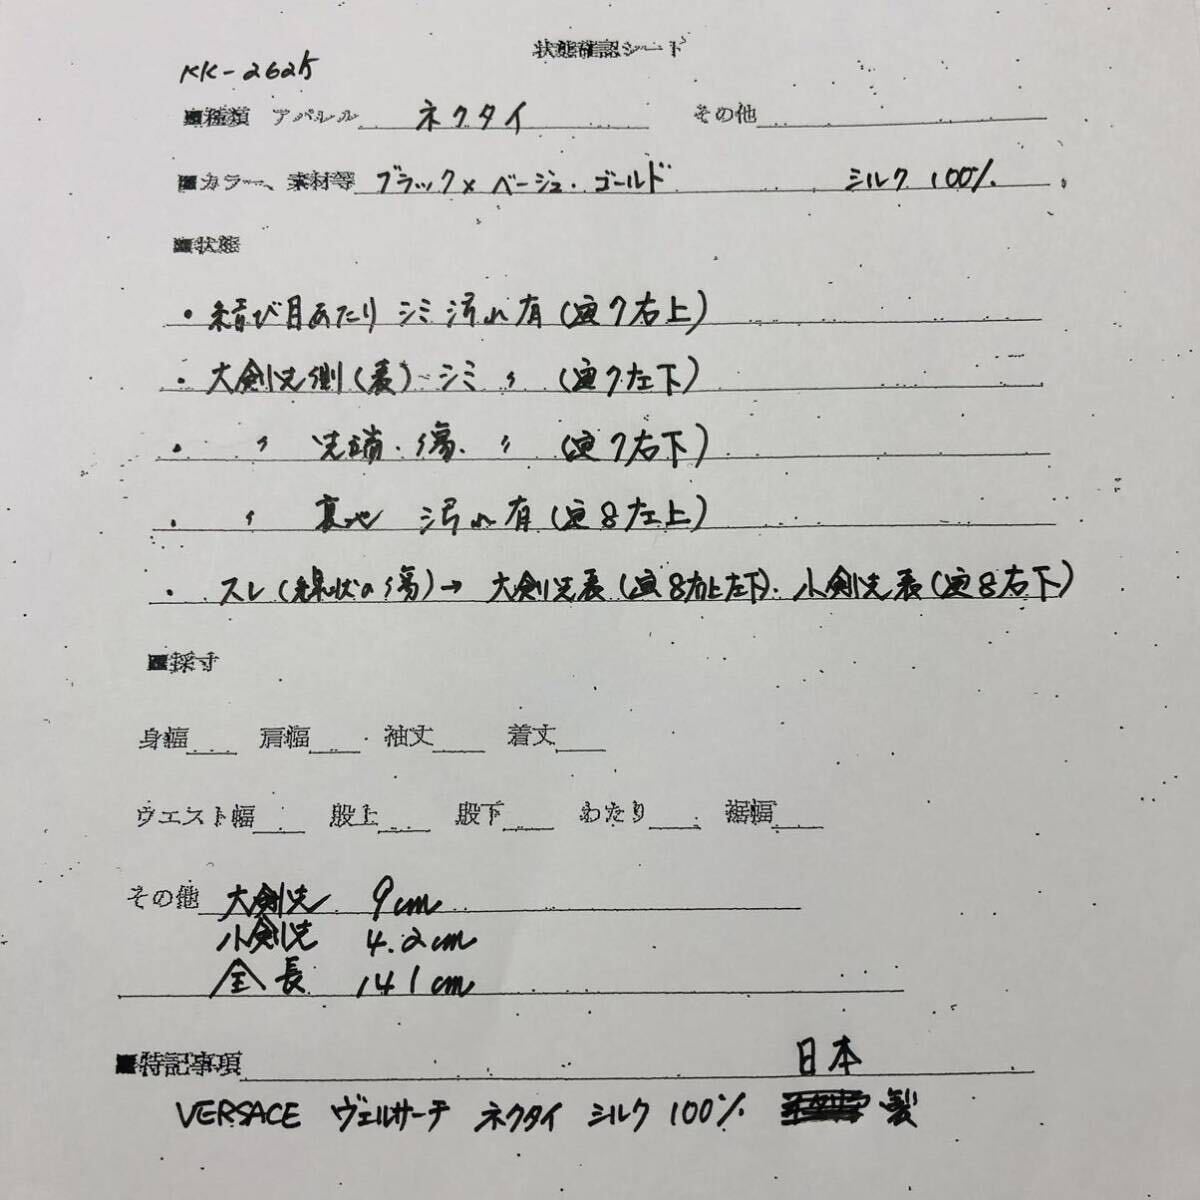 状態確認シート
KK-262大
■種類 アパレル ネクタイ その他
■カラー、素材等 ブラック×ベージュ・ゴールド シルク 100%
■状態
・結び目あたり シミ 汚れ有(画7右上)
・大剣先側(表) シミ 〃 (画7左下)
・〃 先端・傷、〃 (画7右下)
・〃 裏地 汚れ有(画8左上)
・スレ(線状の傷)→ 大剣先表(画8右上左下)、小剣先表(画8右下)
■採寸
身幅 肩幅 袖丈 着丈
ウエスト幅 股上 股下 わたり 裾幅
その他 大剣先 9cm
小剣先 4.2cm
全長 141cm
■特記事項 日本
VERSACE ヴェルサーチ ネクタイ シルク 100% 製